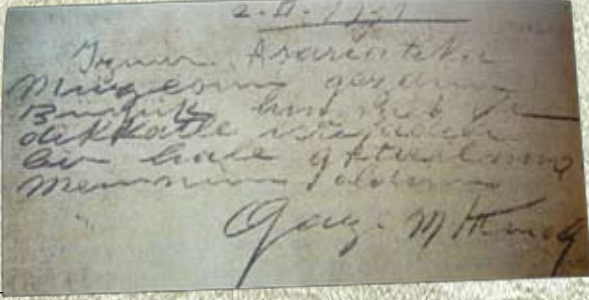 2-II-1931
İzmir Asarıatika
Müzesini gezdim
Büyük
dikkatle
bir hale getirilmiş
Memnun oldum
Gazi M Kemal